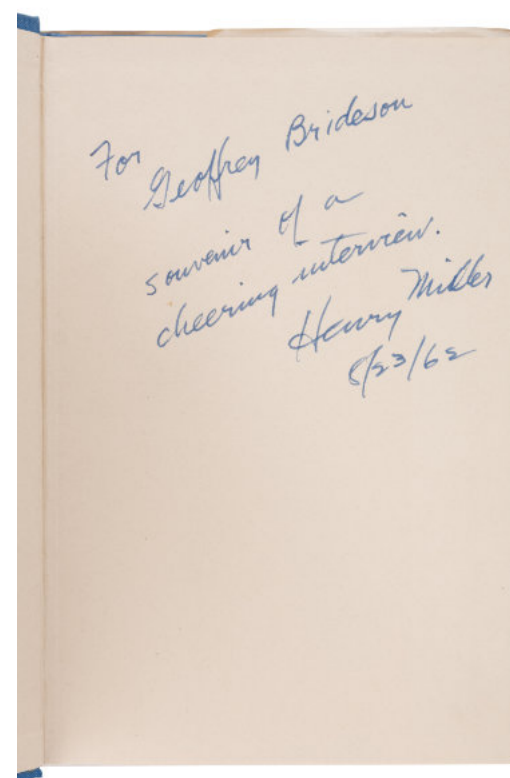 For
Geoffrey Brideson
souvenir of a
cheering interview.
Henry Miller
8/23/62